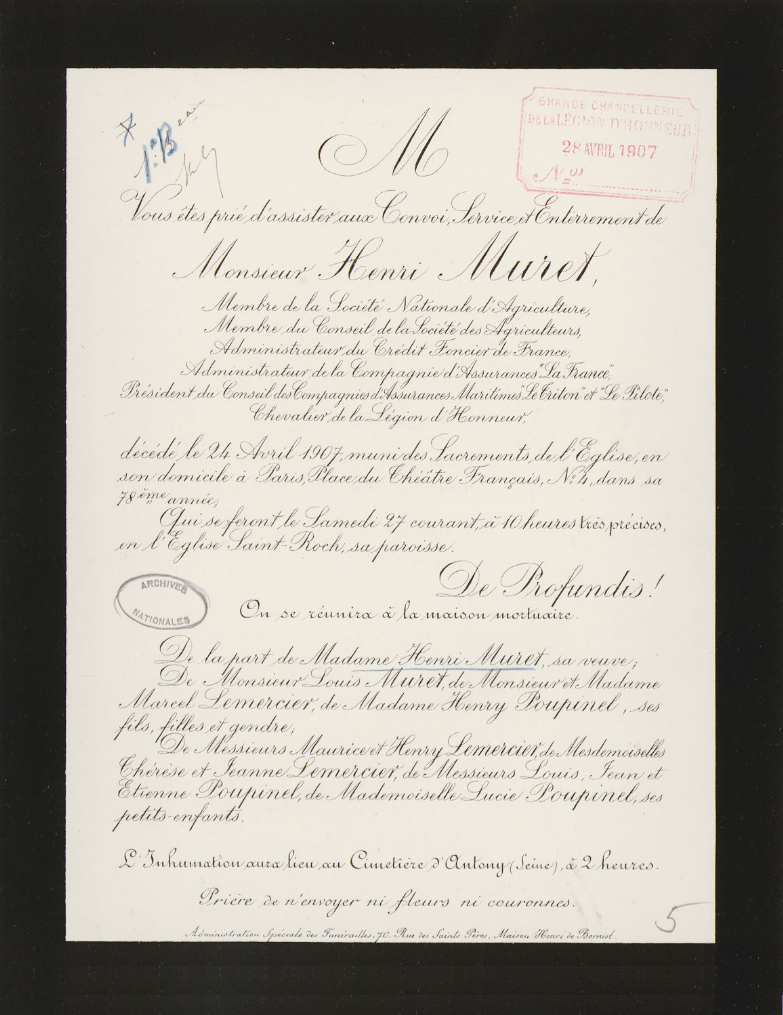 GRANDE CHANCELLERIE
DE LA LÉGION D'HONNEUR
28 AVRIL 1907
Nº
M
Vous êtes prié d'assister aux Convoi, Service et Enterrement de
Monsieur Henri Muret,
Membre de la Société Nationale d'Agriculture,
Membre du Conseil de la Société des Agriculteurs,
Administrateur du Crédit Foncier de France,
Administrateur de la Compagnie d'Assurances "La France",
Président du Conseil des Compagnies d'Assurances Maritimes "Le Triton" et "Le Pilote",
Chevalier de la Légion d'Honneur,
décédé le 24 Avril 1907, muni des Sacrements de l'Eglise, en
son domicile à Paris, Place du Théâtre Français, Nº 4, dans sa
78ème année;
Qui se feront le Samedi 27 courant, à 10 heures très précises,
en l'Eglise Saint-Roch, sa paroisse.
De Profundis!
ARCHIVES
NATIONALES
On se réunira à la maison mortuaire.
De la part de Madame Henri Muret, sa veuve;
De Monsieur Louis Muret, de Monsieur et Madame
Marcel Lemercier, de Madame Henry Poupinel, ses
fils, filles et gendre;
De Messieurs Maurice et Henry Lemercier, de Mesdemoiselles
Thérèse et Jeanne Lemercier, de Messieurs Louis, Jean et
Etienne Poupinel, de Mademoiselle Lucie Poupinel, ses
petits-enfants.
L'Inhumation aura lieu au Cimetière d'Antony (Seine), à 2 heures.
Prière de n'envoyer ni fleurs ni couronnes.
5
Administration Spéciale des Funérailles, 70, Rue des Saints Pères, Maison Henri de Borniol.